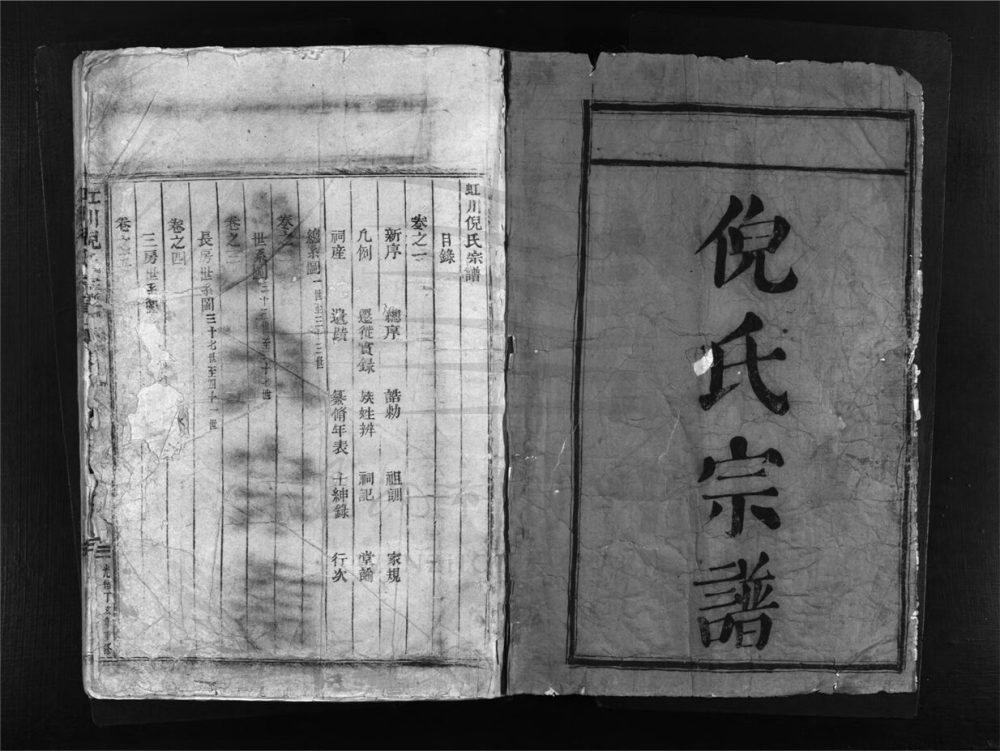 倪氏宗譜
虹川倪氏宗譜
目錄
卷之一
新序 總序 誥勅 祖訓 家規
凡例 遷徙實錄 姓辨 祠記 堂
祠產 遺 年表 士紳錄 行次
總系圖一世至三十三世
卷之二
世系圖三十三世至三十七世
卷之三
長房世系圖三十七世至四十一世
卷之四
三房世系圖
卷之五
光緒丁亥